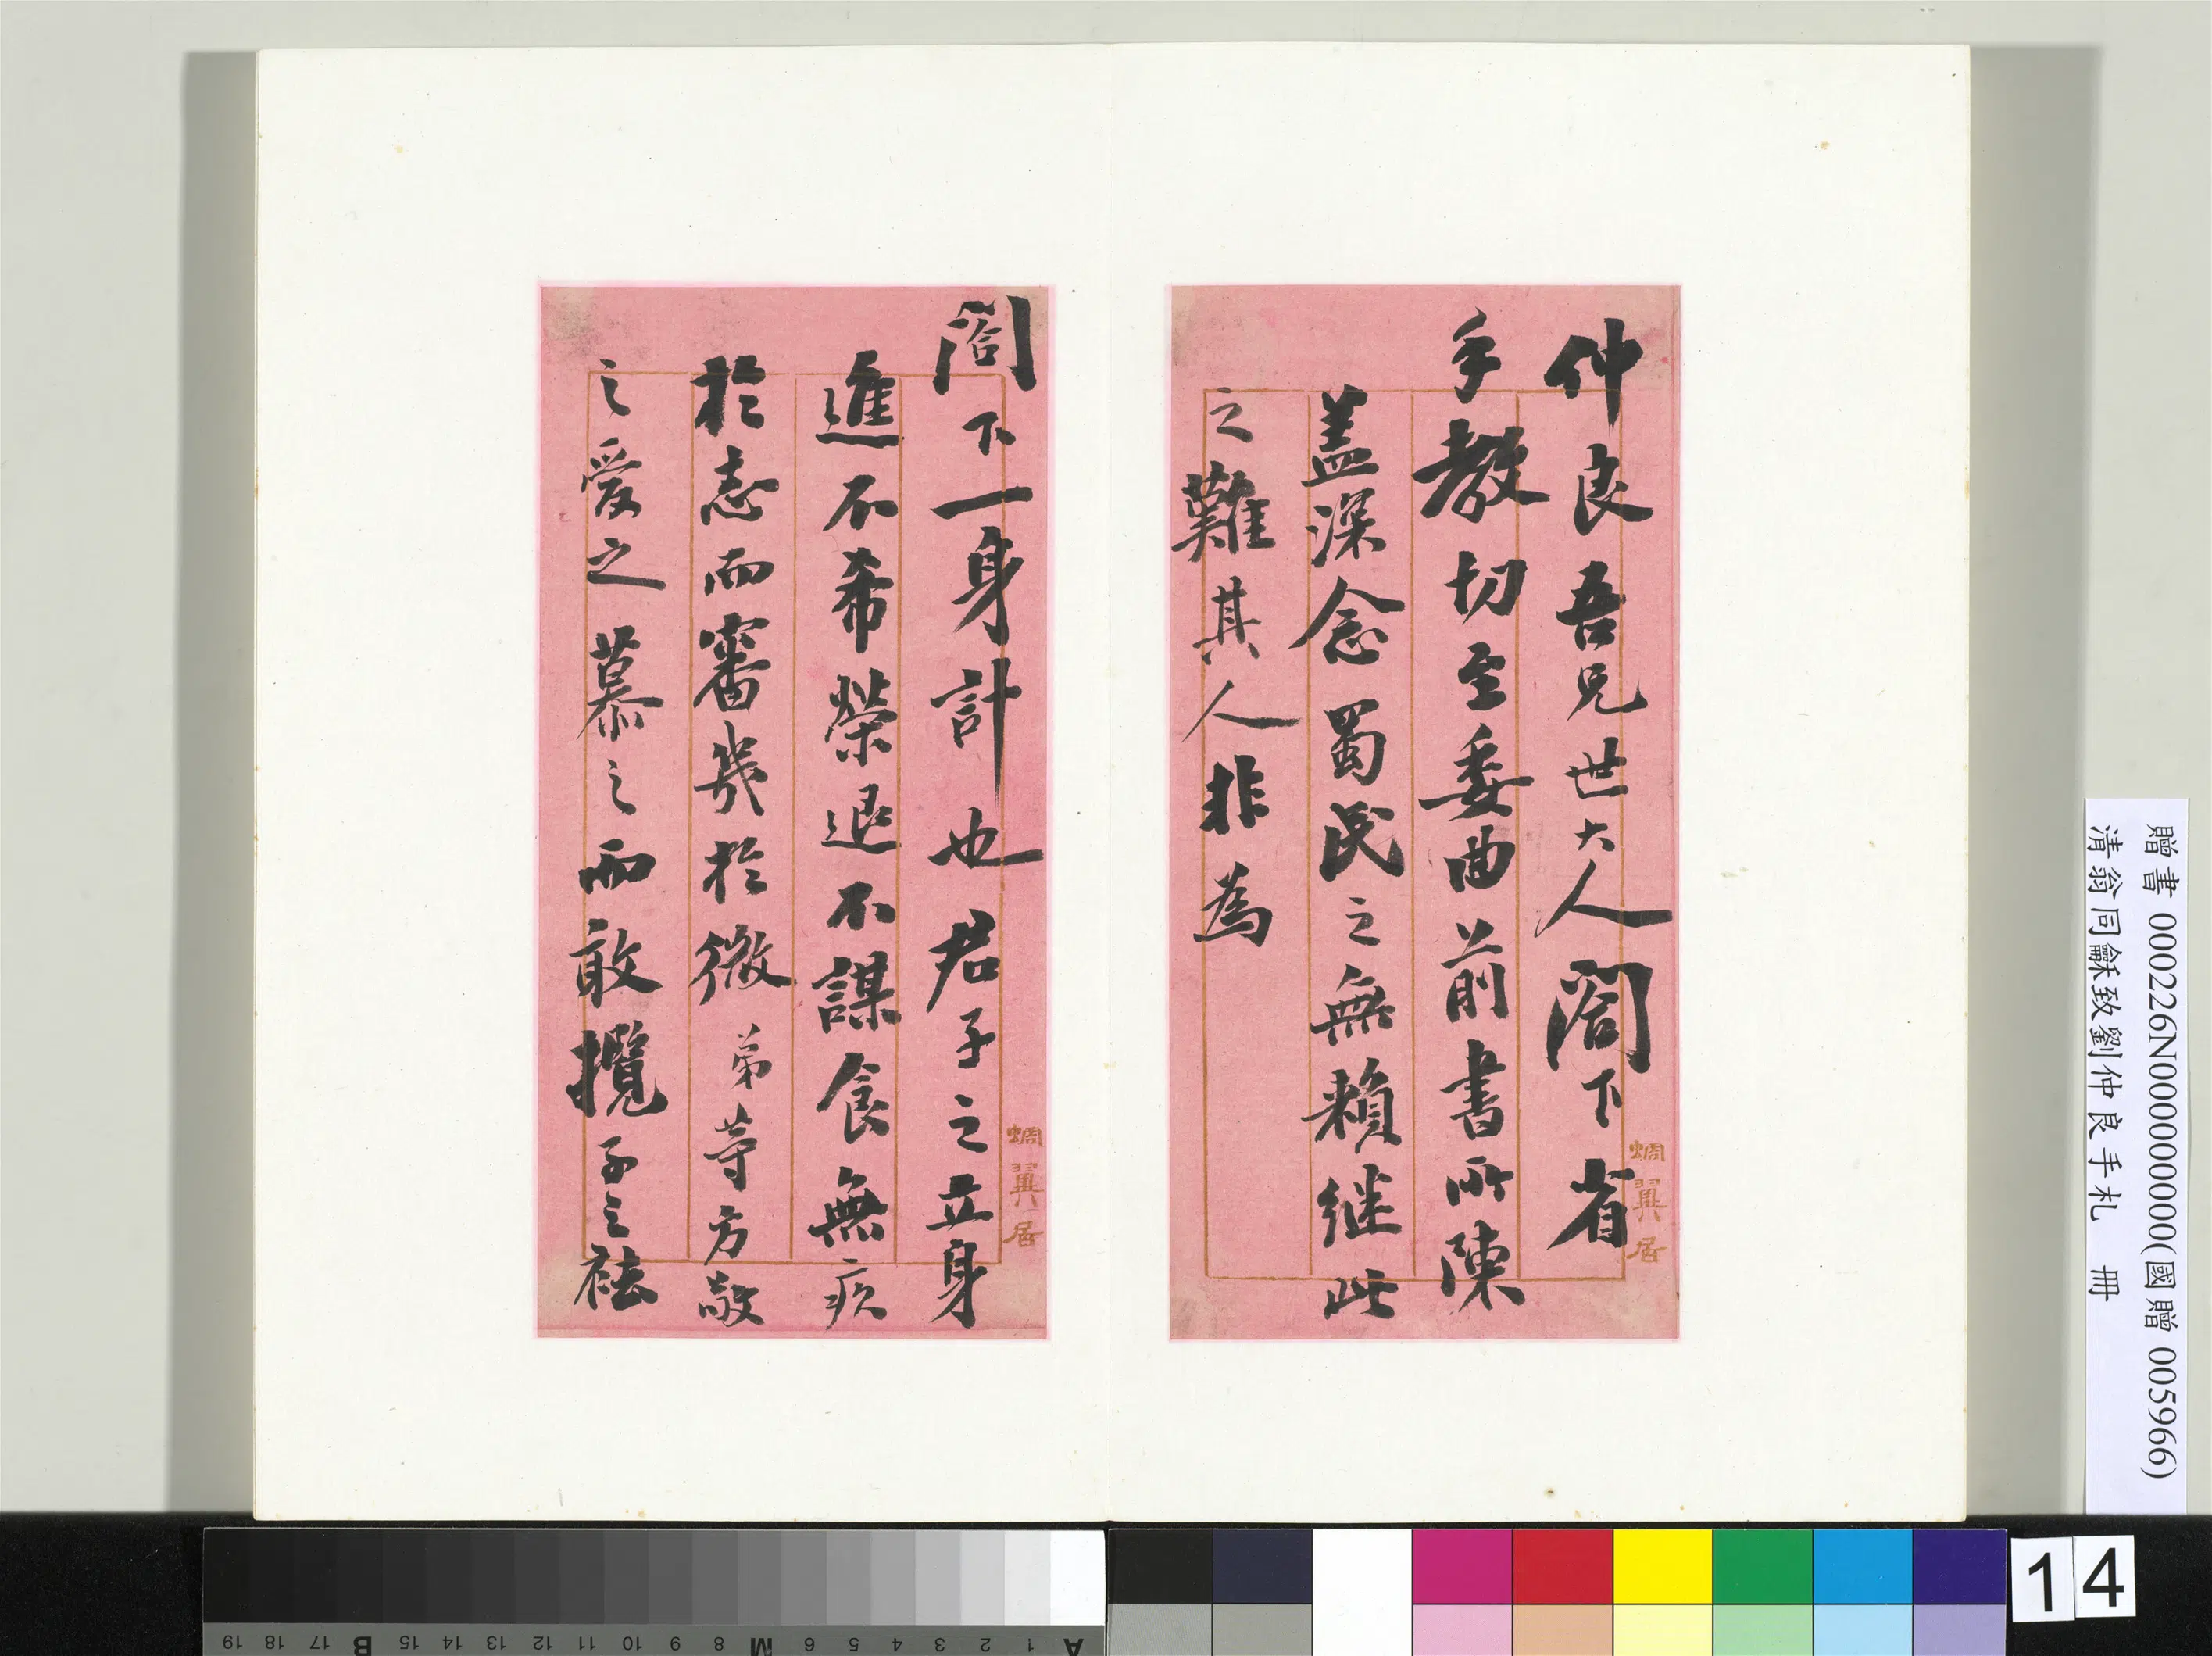 仲良吾兄世大人閤下省
手教切至委曲前書所陳
蓋深念蜀民之無賴繼此
之難其人非為
蜩翼居
閤下一身計也君子之立身
進不希榮退不謀食無疚
於志而審幾於微弟等方敬
之愛之慕之而敢攬子之袪
蜩翼居
贈書 000226N000000000(國贈 005966)
清翁同龢致劉仲良手札 冊
A 1 2 3 4 5 6 M 8 9 10 11 12 13 14 15 B 17 18 19
14